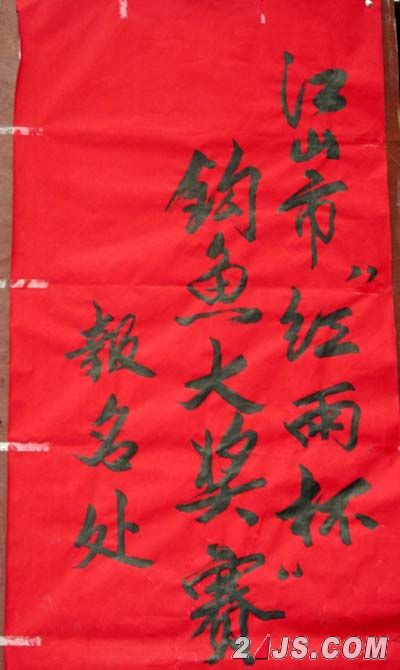 江山市“经雨杯”
钓鱼大奖赛
報名处
2JS.COM